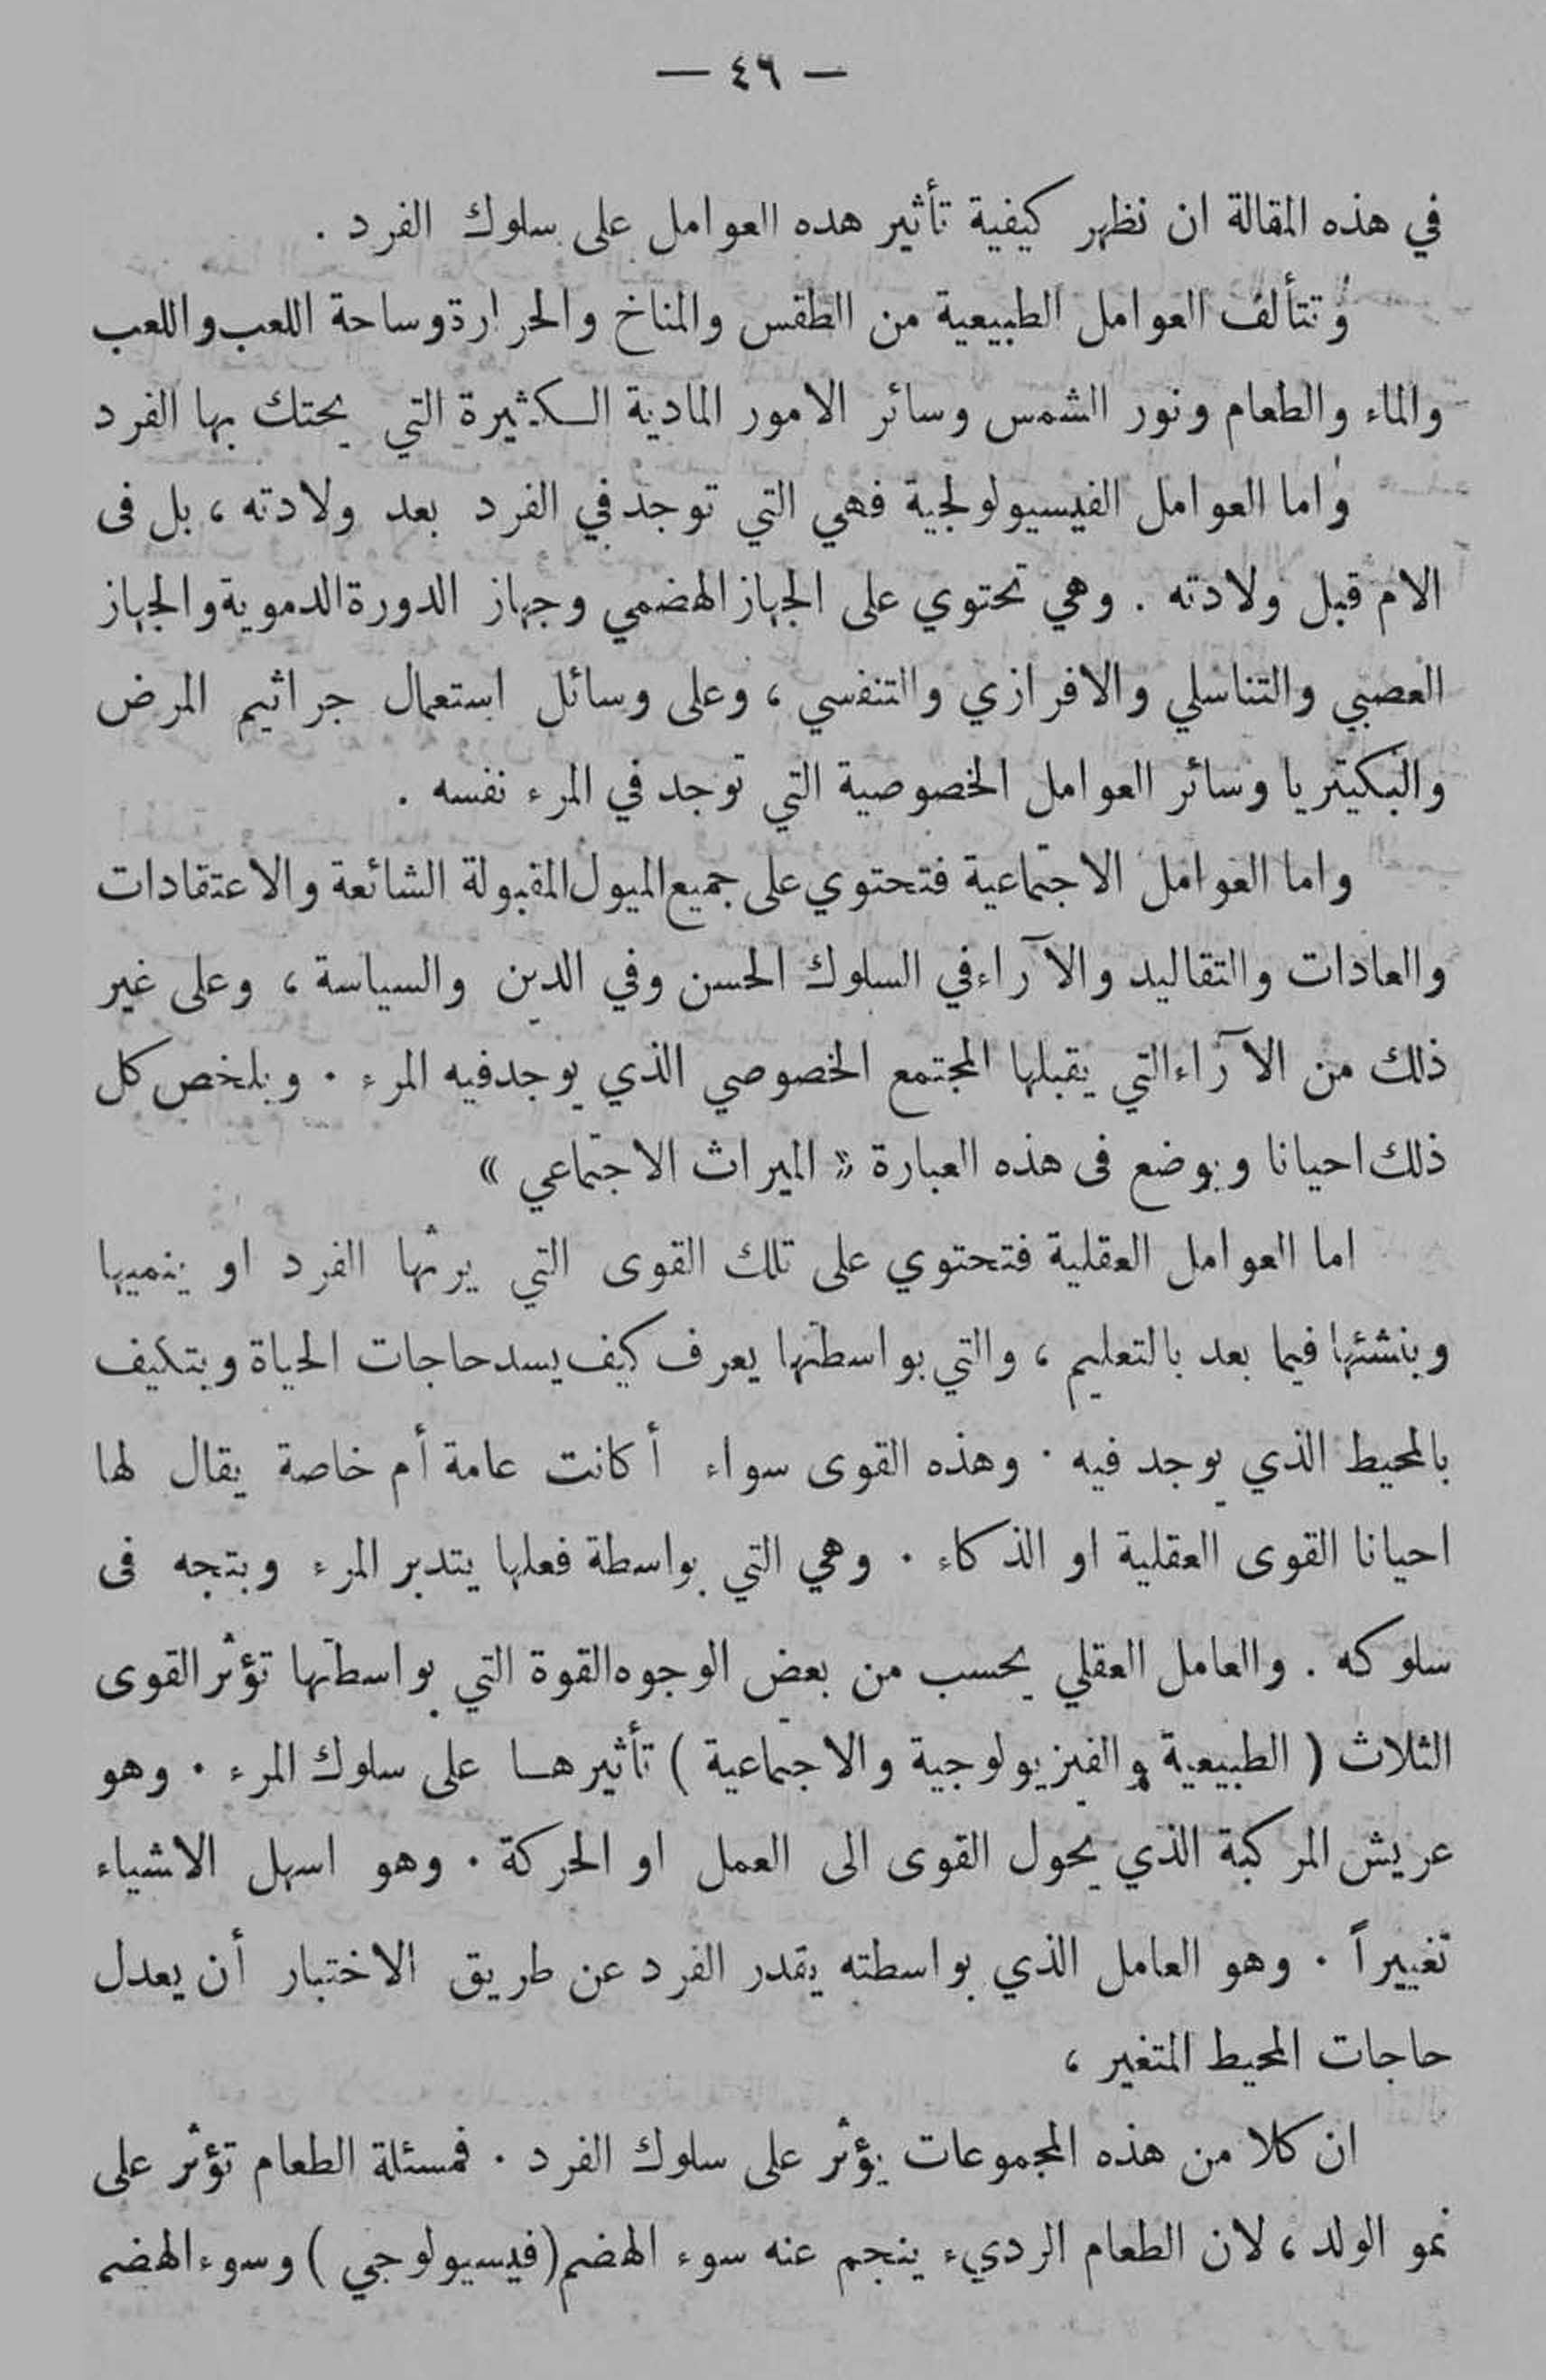 — ٤٦ —
في هذه المقالة ان نظهر كيفية تأثير هده العوامل على سلوك الفرد .
وتتألف العوامل الطبيعية من الطقس والمناخ والحرارة وساحة اللعب واللعب
والماء والطعام ونور الشمس وسائر الامور المادية الكثيرة التي يحتك بها الفرد
واما العوامل الفيسيولولجية فهي التي توجد في الفرد بعد ولادته ، بل فى
الام قبل ولادته . وهي تحتوي على الجهاز الهضمي وجهاز الدورة الدموية والجهاز
العصبي والتناسلي والافرازي والتنفسي ، وعلى وسائل استعمال جراثيم المرض
والبكيتريا وسائر العوامل الخصوصية التي توجد في المرء نفسه .
واما العوامل الاجتماعية فتحتوي على جميع الميول المقبولة الشائعة والاعتقادات
والعادات والتقاليد والآراء في السلوك الحسن وفي الدين والسياسة ، وعلى غير
ذلك من الآراء التي يقبلها المجتمع الخصوصي الذي يوجد فيه المرء . ويلخص كل
ذلك احيانا ويوضع فى هذه العبارة « الميراث الاجتماعي »
اما العوامل العقلية فتحتوي على تلك القوى التي يرثها الفرد او ينميها
وينشئها فيما بعد بالتعليم ، والتي بواسطتها يعرف كيف يسد حاجات الحياة ويتكيف
بالمحيط الذي يوجد فيه . وهذه القوى سواء أكانت عامة أم خاصة يقال لها
احيانا القوى العقلية او الذكاء . وهي التي بواسطة فعلها يتدبر المرء ويتجه فى
سلوكه . والعامل العقلي يحسب من بعض الوجوه القوة التي بواسطتها تؤثر القوى
الثلاث ( الطبيعية والفيزيولوجية والاجتماعية ) تأثيرها على سلوك المرء . وهو
عريش المركبة الذي يحول القوى الى العمل او الحركة . وهو اسهل الاشياء
تغييراً . وهو العامل الذي بواسطته يقدر الفرد عن طريق الاختبار أن يعدل
حاجات المحيط المتغير ،
ان كلا من هذه المجموعات يؤثر على سلوك الفرد . فمسئلة الطعام تؤثر على
نمو الولد ، لان الطعام الرديء ينجم عنه سوء الهضم (فيسيولوجي ) وسوء الهضم